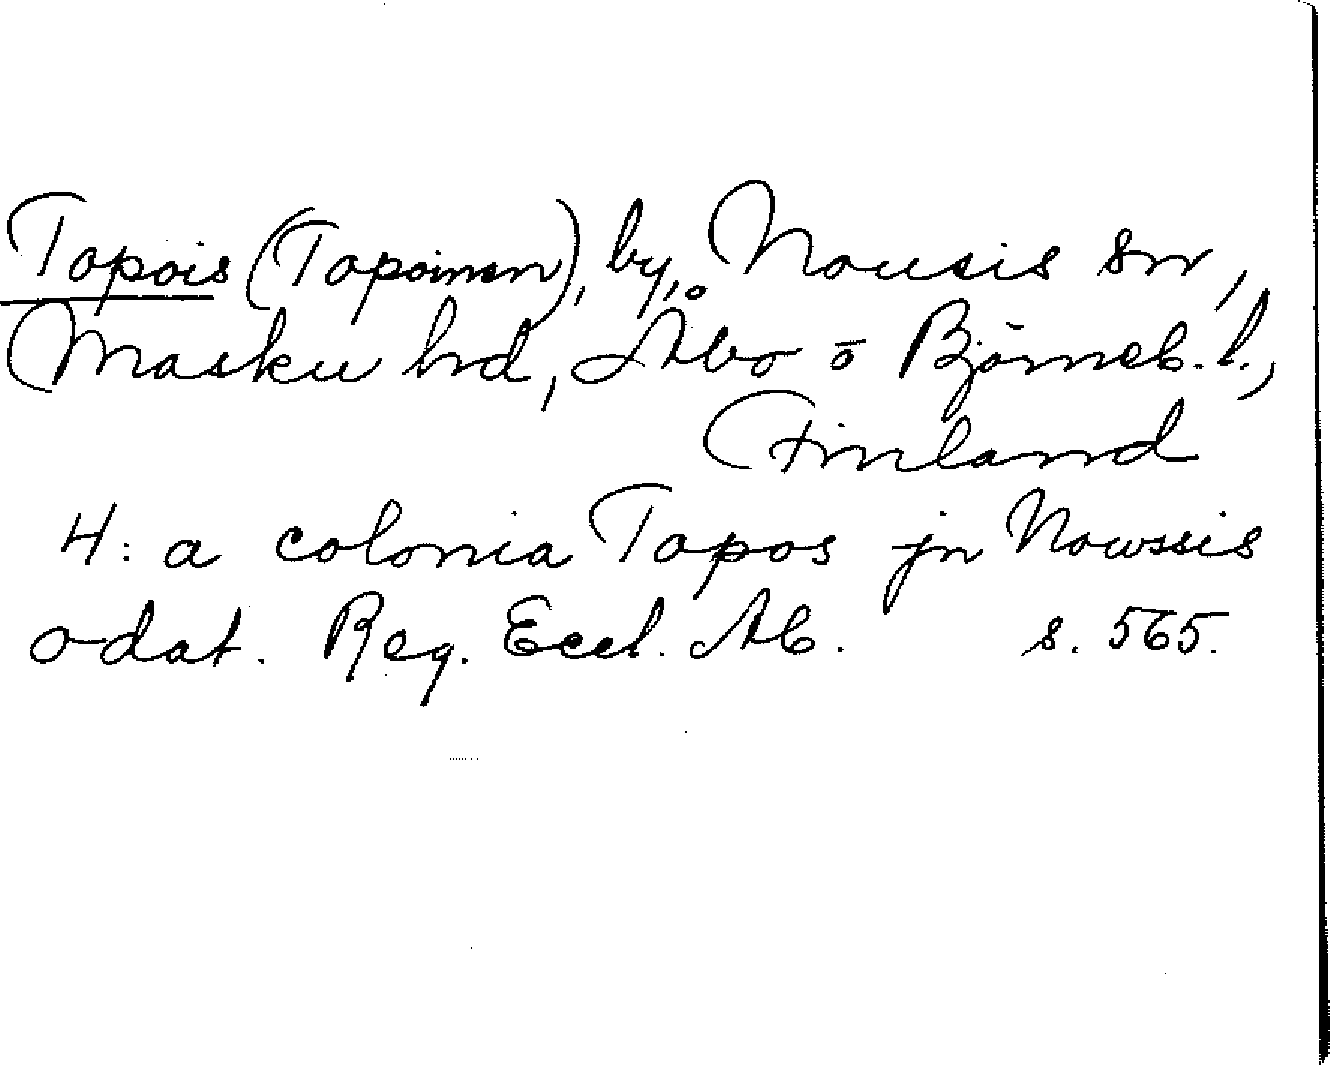 Tapois (Tapoinen), by, Nousis sn,
Masku hd, Åbo o Björneb. l.,
Finland
H: a colonia Tapos jn Nowssis
odat. Reg. Eccl. Ab. s. 565.